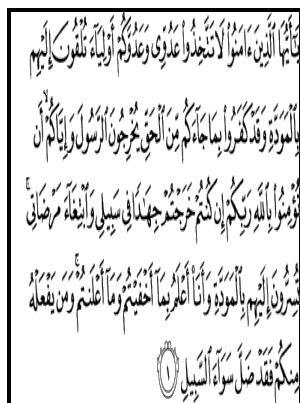 يَٰٓأَيُّهَا ٱلَّذِينَ ءَامَنُوا۟ لَا تَتَّخِذُوا۟ عَدُوِّى وَعَدُوَّكُمْ أَوْلِيَآءَ تُلْقُونَ إِلَيْهِم
بِٱلْمَوَدَّةِ وَقَدْ كَفَرُوا۟ بِمَا جَآءَكُم مِّنَ ٱلْحَقِّ يُخْرِجُونَ ٱلرَّسُولَ وَإِيَّاكُمْ ۙ أَن
تُؤْمِنُوا۟ بِٱللَّهِ رَبِّكُمْ إِن كُنتُمْ خَرَجْتُمْ جِهَٰدًا فِى سَبِيلِى وَٱبْتِغَآءَ مَرْضَاتِى ۚ
تُسِرُّونَ إِلَيْهِم بِٱلْمَوَدَّةِ وَأَنَا۠ أَعْلَمُ بِمَآ أَخْفَيْتُمْ وَمَآ أَعْلَنتُمْ ۚ وَمَن يَفْعَلْهُ
مِنكُمْ فَقَدْ ضَلَّ سَوَآءَ ٱلسَّبِيلِ ١